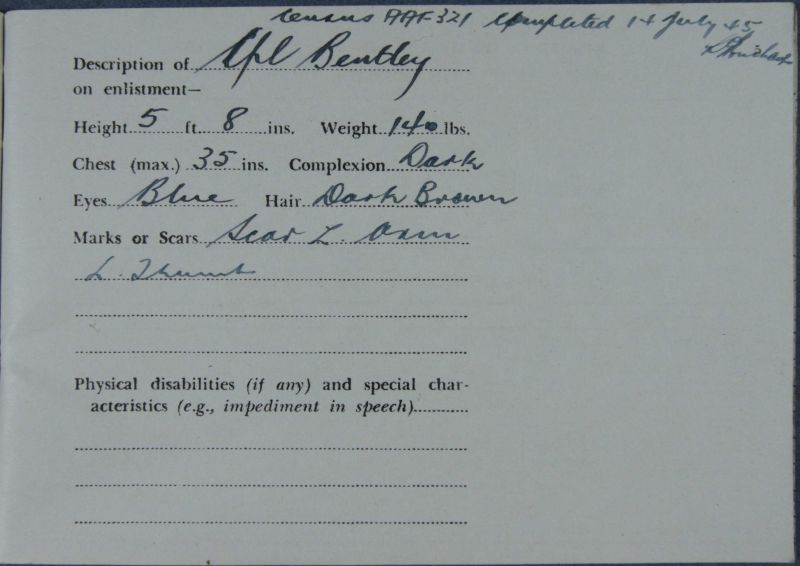 Census AAF 321 Completed 14 July 45
Description of Cpl Bentley
on enlistment—
Height 5 ft. 8 ins. Weight 140 lbs.
Chest (max.) 35 ins. Complexion Dark
Eyes Blue Hair Dark Brown
Marks or Scars Scar L. Arm
L. Thumb
Physical disabilities (if any) and special char-
acteristics (e.g., impediment in speech)